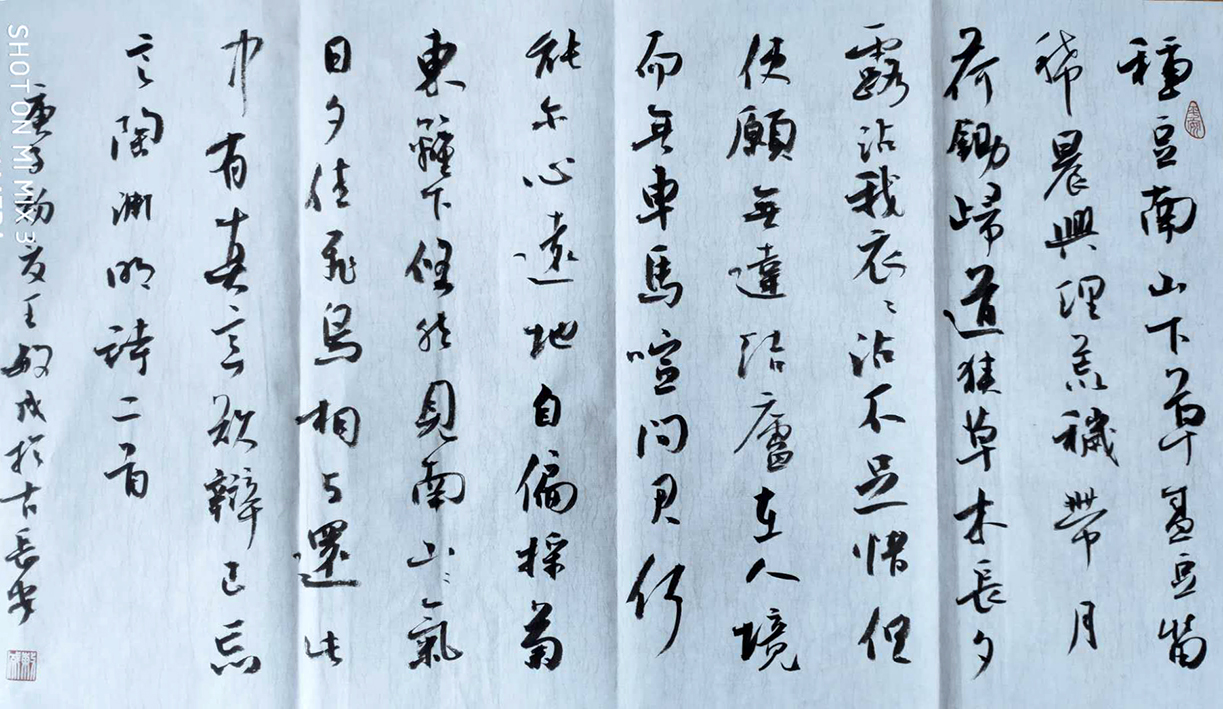 種豆南山下草盛豆苗
稀晨興理荒穢帶月
荷鋤歸道狹草木長夕
露沾我衣〻沾不足惜但
使願無違結廬在人境
而無車馬喧問君何
能尔心遠地自偏採菊
東籬下悠然見南山〻氣
日夕佳飛鳥相与還此
中有真意欲辯已忘
言陶渊明詩二首
庚子初夏王敏於古長安
SHOT ON MI MIX 3